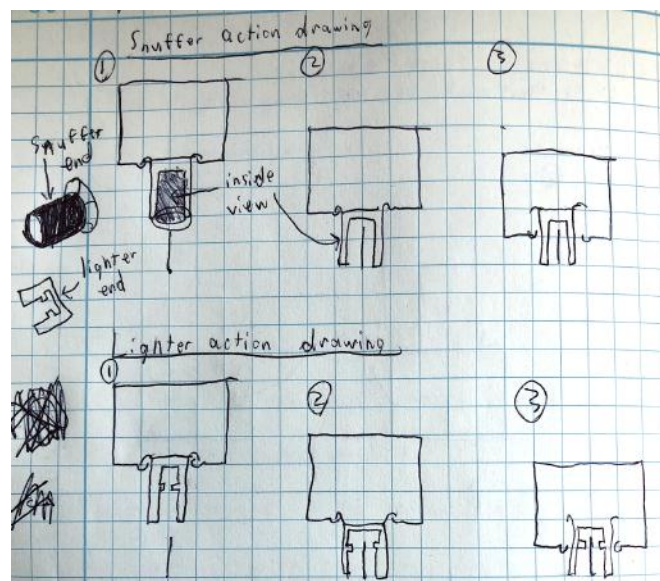 Snuffer action drawing
1
2
3
Snuffer
end
inside
view
lighter
end
Lighter action drawing
1
2
3